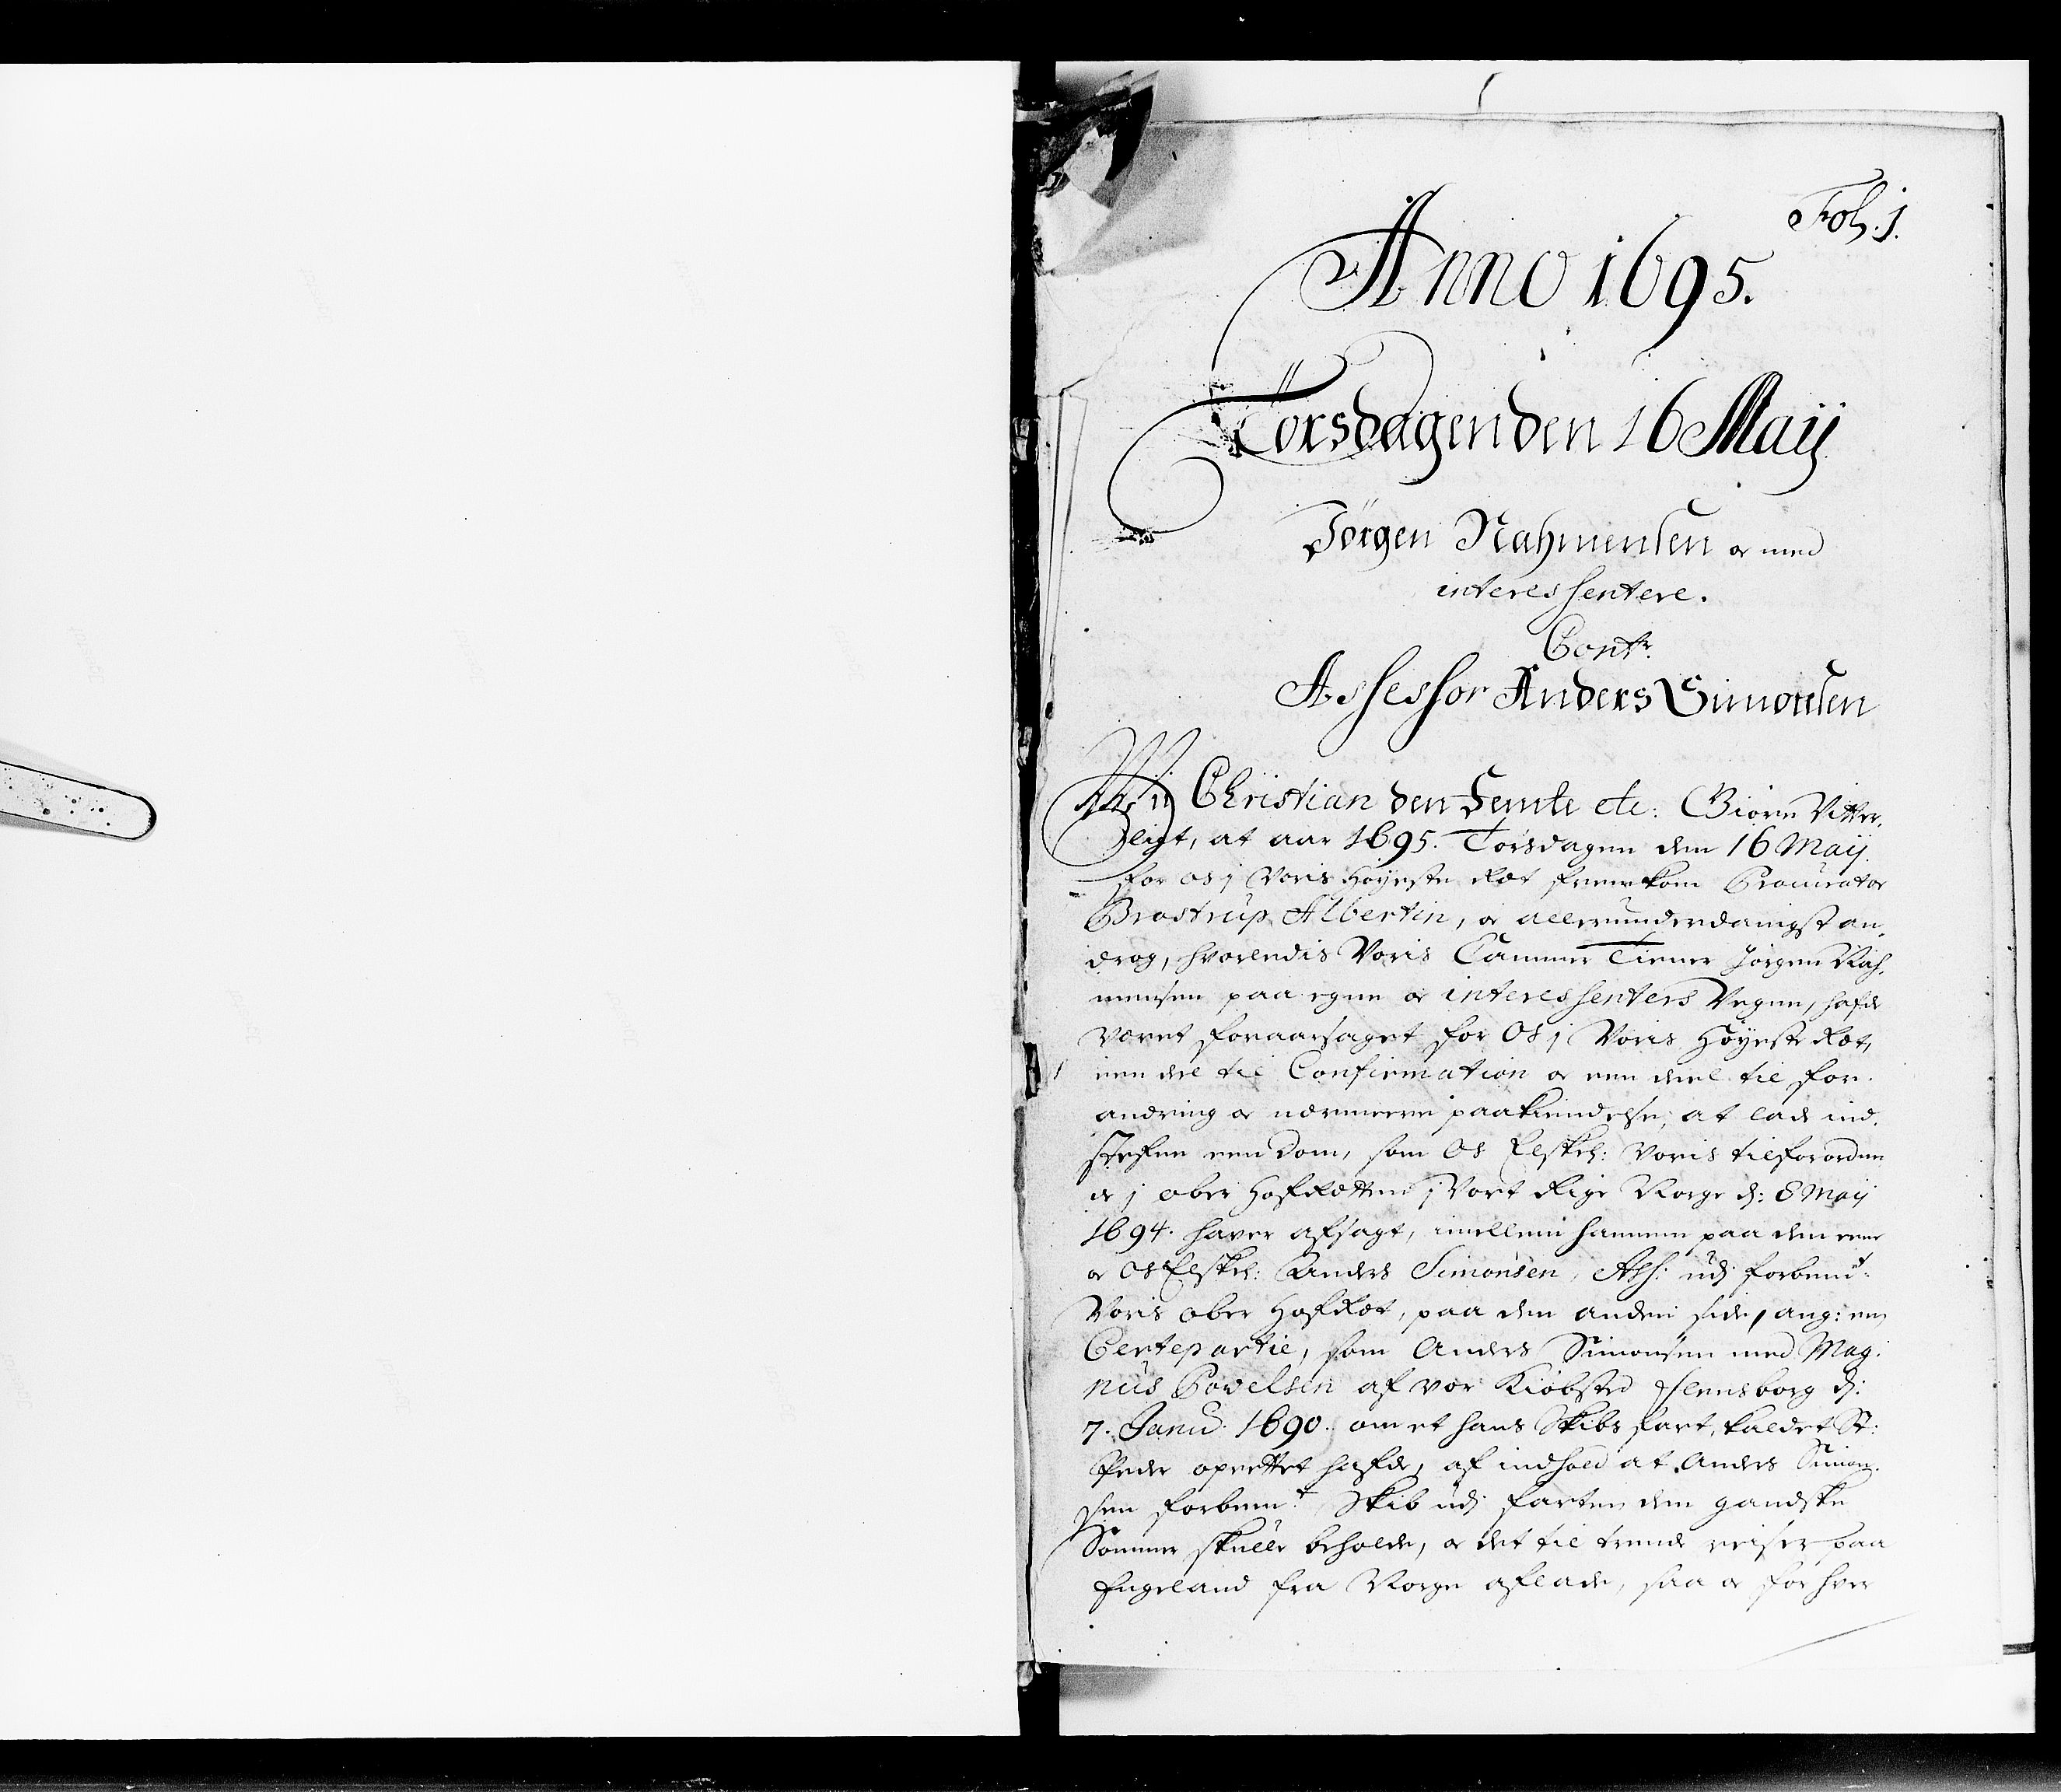 Fol. 1.
Anno 1695.
Torsdagen den 16 Maij
Jørgen Nahmensen og med
interessentere.
Contr.
Assessor Anders Simonsen
Wii Christian den Femte etc: Giøre Vitter,
ligt, at aar 1695. Torsdagen den 16 Maij.
for os j Voris Høyeste Ræt fremkom Procurator
Brostrup Albertin, og allerunderdanigst an,
drog, hvorledis Voris Cammer Tiener Jørgen Nah,
mensen paa egne og interessenters Vegne, hafde
været foraarsaget for Os j Voris Høyeste Ræt,
een deel til Confirmation og een deel til for,
andring og nærmere paakiendelse, at lade ind,
stefne een Dom, som Os Elskel: Voris tilforordne,
de j Ober HofRætten j Vort Rige Norge d: 8 Maij
1694. haver afsagt, imellem hannem paa den eene
og Os Elskel: Anders Simonsen, Ass: udj forbemt:
Voris Ober HofRæt, paa den anden side, ang: en
Certepartie, som Anders Simonsen med Mag,
nus Povelsen af vor Kiøbsted Flensborg d:
7. Janu: 1690. om et hans Skibs fart, kaldet St:
Peder oprettet hafde, af indhold at Anders Simon,
sen forbem:t Skib udj farten den gandske
Sommer skulle beholde, og det til trende reiser paa
Engeland fra Norge aflade, saa og for hver